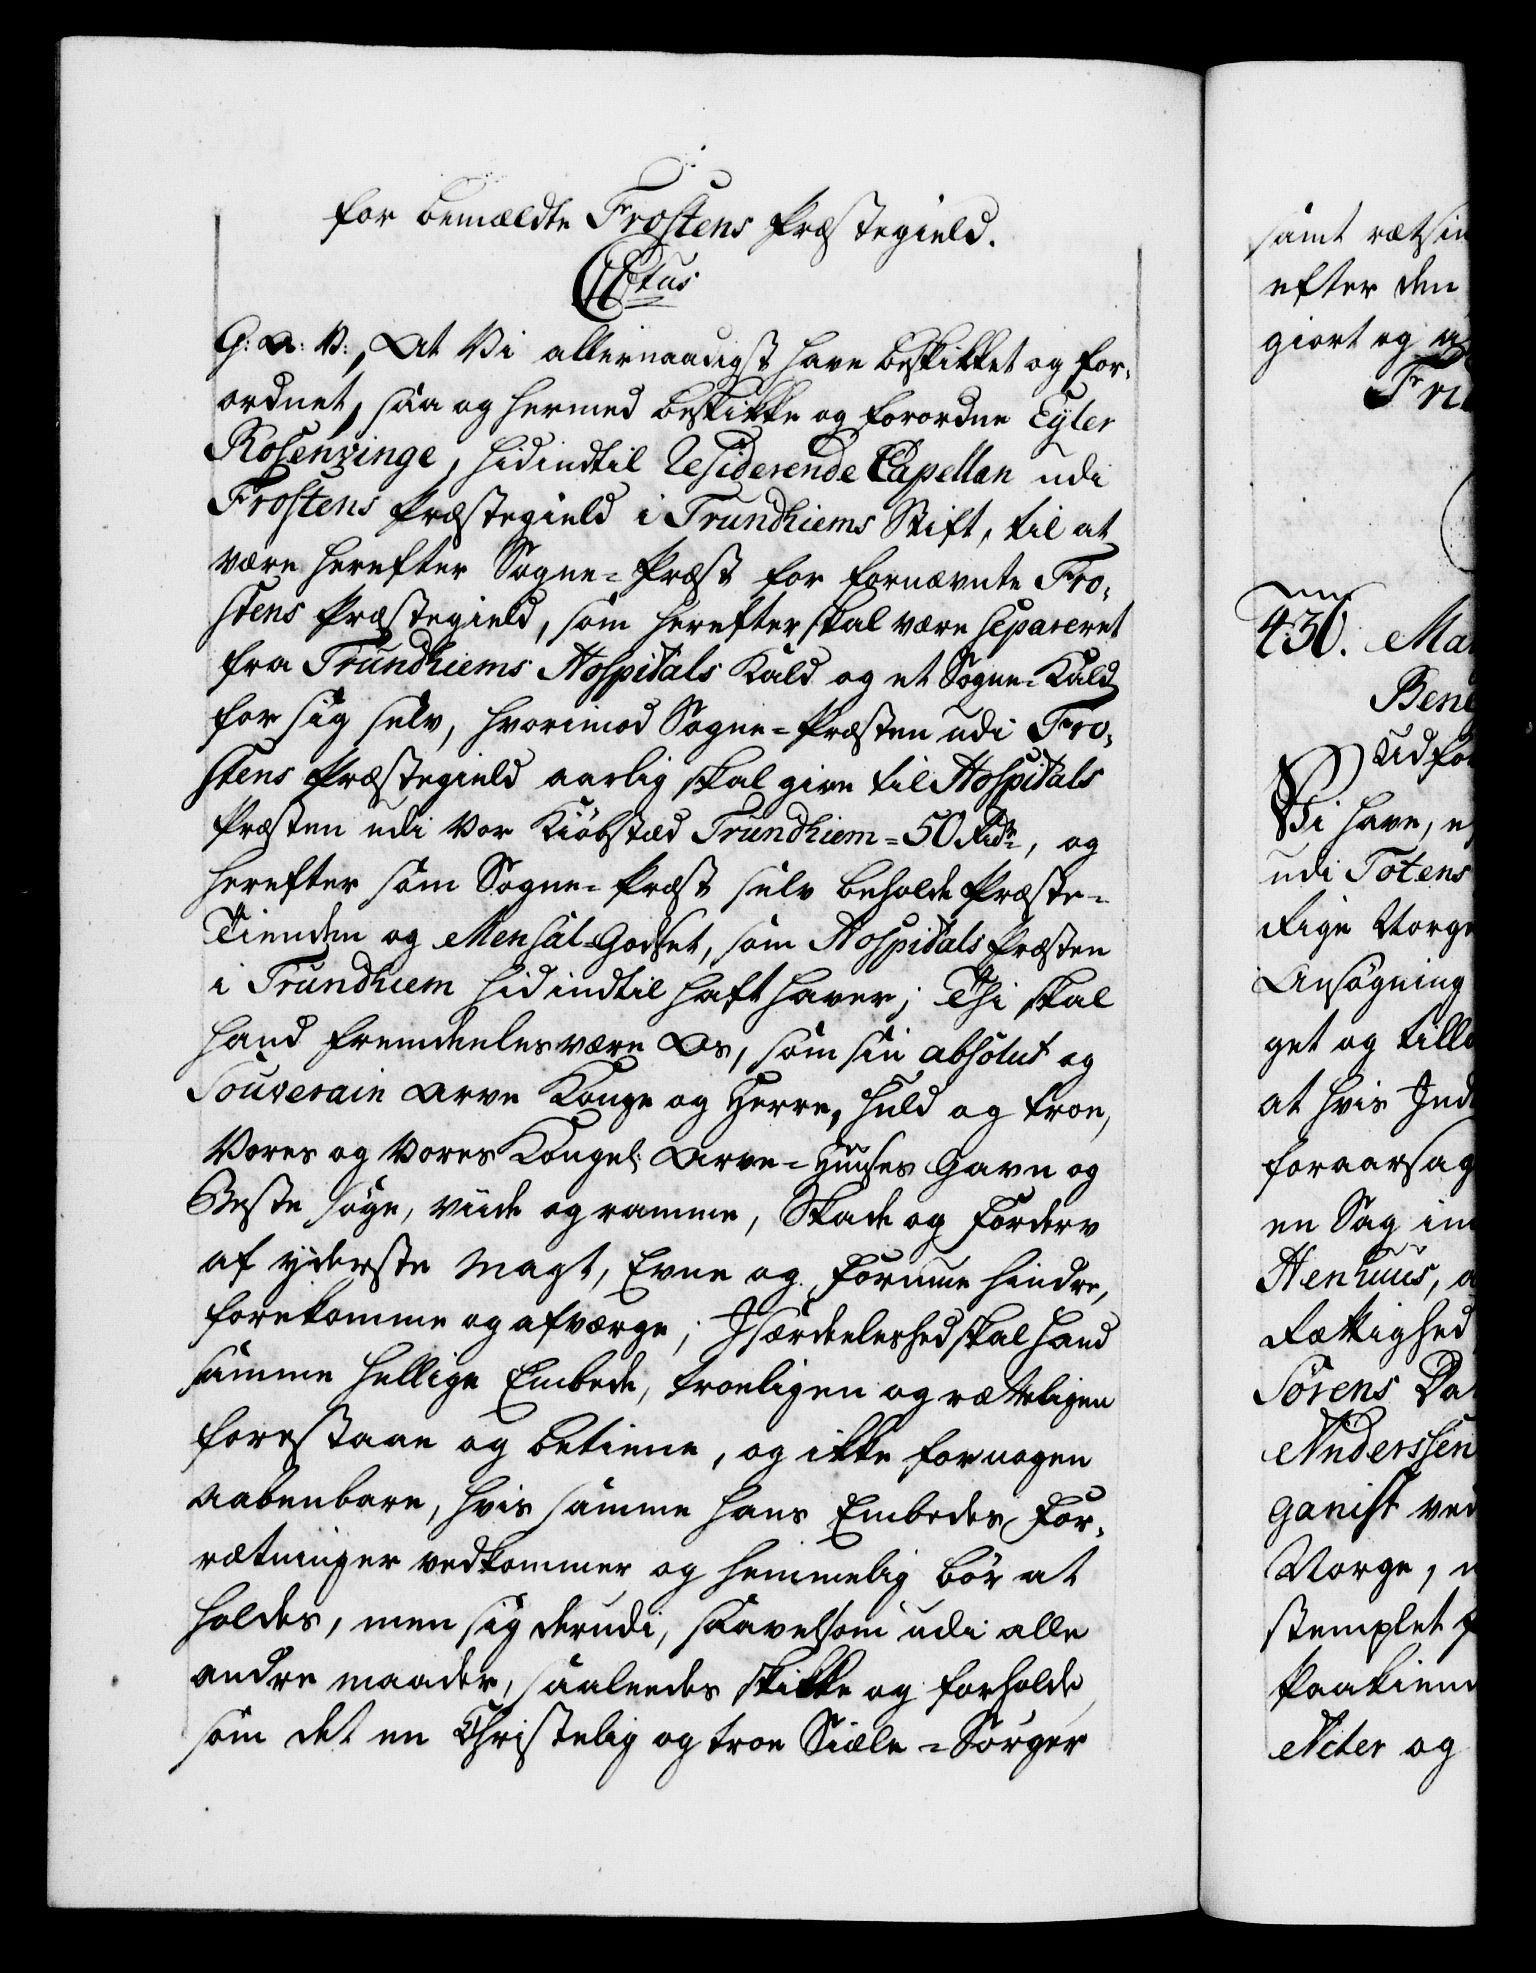 for bemældte Frostens Præstegield.
CCtus
G: A: V:, At Vi allernaadigst have beskikket og for-
ordnet, saa og hermed beskikke og forordne Eyler
Rosenvinge, hidindtil Residerende Capellan udi
Frostens Præstegield i Trundhiems Stift, til at
være herefter Sogne-Præst for fornævnte Fro-
stens Præstegield, som herefter skal være separeret
fra Trundhiems Hospitals Kald og et Sogne-Kald
for sig selv, hvorimod Sogne-Præsten udi Fro-
stens Præstegield aarlig skal give til Hospitals
Præsten udi Vor Kiöbstæd Trundhiem 50 Rdr, og
herefter som Sogne-Præst selv beholde Præste-
Tienden og Mensal-Godset, som Hospitals Præsten
i Trundhiem hidindtil haft haver; Thi skal
hand fremdeeles være Os, som sin absolut og
Souverain Arve Konge og Herre, huld og troe,
Vores og Vores Kongel: Arve-Huuses Gavn og
Beste söge, viide og ramme, Skade og Forderv
af yderste Magt, Evne og Formue hindre,
forekomme og afværge; Isærdeeleshed skal hand
samme hellige Embede, troeligen og rætteligen
forestaae og betiene, og ikke for nogen
aabenbare, hvis samme hans Embedes For-
rætninger vedkommer og hemmelig bör at
holdes, men sig derudi, saavelsom udi alle
andre maader, saaleedes skikke og forholde
som det en Christelig og troe Siæle-Sörger
samt rætsin
efter den
giort og
Fri
436. Ma
Bene
Udfo
Vi have,
udi Totens
Rige Norge
Ansögning
get og till
at hvis Ind
foraarsag
en Sag in
Henhuus,
Rættighed
Sörens Da
Anderssen
ganist ved
Norge,
stemplet
Paakiend
Acter og